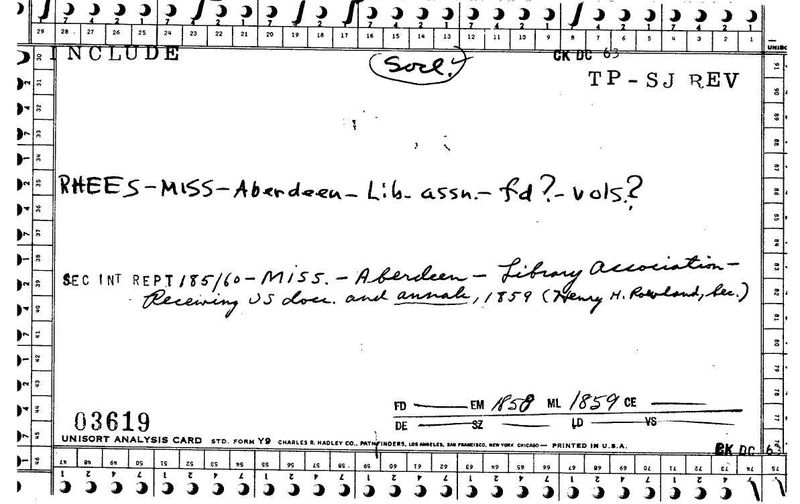 29 28 27 26 25 24 23 22 21 20 19 18 17 16 15 14 13 12 11 10 9 8 7 6 5 4 3 2 1
INCLUDE
Socl.
CK DC 63
TP-SJ REV
RHEES-MISS-Aberdeen-Lib. assn.-fd?-vols?
SEC INT REPT 185/60-Miss.-Aberdeen-Library Association-
Receiving US docc. and annals, 1859 (Henry H. Rowland, Sec.)
FD EM 1858 ML 1859 CE
DE SZ LD VS
03619
UNISORT ANALYSIS CARD STD. FORM Y9 CHARLES R. HADLEY CO., PATHFINDERS, LOS ANGELES, SAN FRANCISCO, NEW YORK CHICAGO— PRINTED IN U.S.A.
CK DC 63